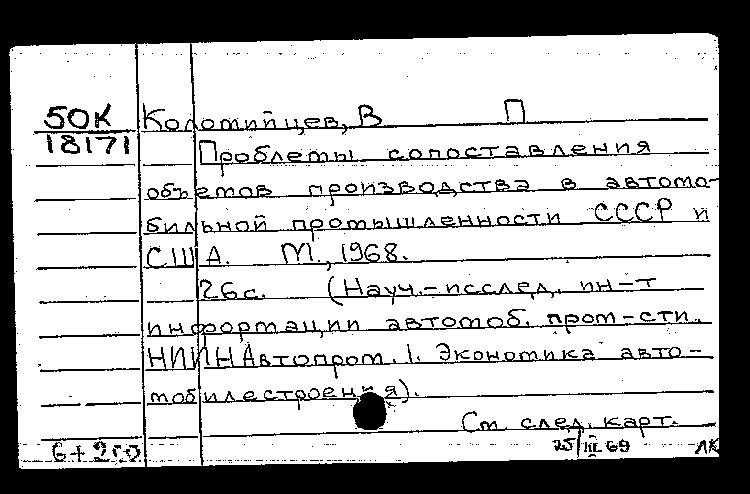 50К Коломийцев, В П
18171
Проблемы сопоставления
объемов производства в автомо-
бильной промышленности СССР и
США. М., 1968.
26с. (Науч.-исслед. ин-т
информации автомоб. пром-сти.
НИИНАвтопром. 1. Экономика авто-
мобилестроения).
См. след. карт.
25/III 69 ЛК